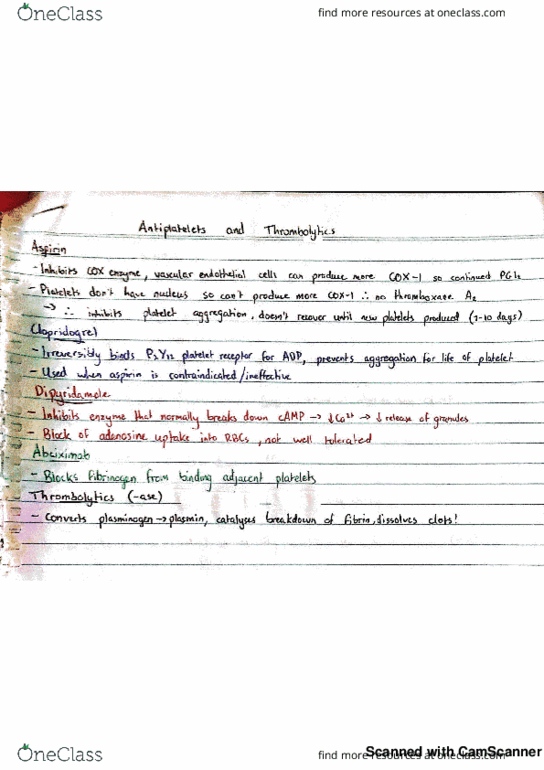 OneClass
find more resources at oneclass.com
Antiplatelets and Thrombolytics
Aspirin
- Inhibits COX enzyme, vascular endothelial cells can produce more COX-1 so continued PGI₂
- Platelets don't have nucleus so can't produce more COX-1 ∴ no thromboxane A₂
→ ∴ inhibits platelet aggregation, doesn't recover until new platelets produced (7-10 days)
Clopridogrel
- Irreversibly binds P₂Y₁₂ platelet receptor for ADP, prevents aggregation for life of platelet
- Used when aspirin is contraindicated/ineffective
Dipyridamole
- Inhibits enzyme that normally breaks down cAMP → ↓Ca²⁺ → ↓ release of granules
- Block of adenosine uptake into RBCs, not well tolerated
Abciximab
- Blocks fibrinogen from binding adjacent platelets
Thrombolytics (-ase)
- Converts plasminogen → plasmin, catalyses breakdown of fibrin, dissolves clots!
OneClass
find more resources at oneclass.com
Scanned with CamScanner